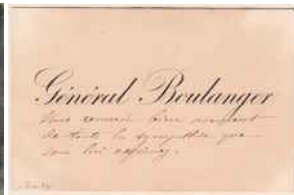 Général Boulanger
Vous remercie bien vivement
de toute la sympathie que
vous lui exprimez.